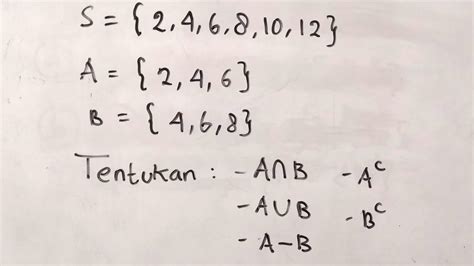 S = { 2, 4, 6, 8, 10, 12}
A = { 2, 4, 6}
B = { 4, 6, 8}
Tentukan : - A∩B - Aᶜ
- A∪B - Bᶜ
- A-B